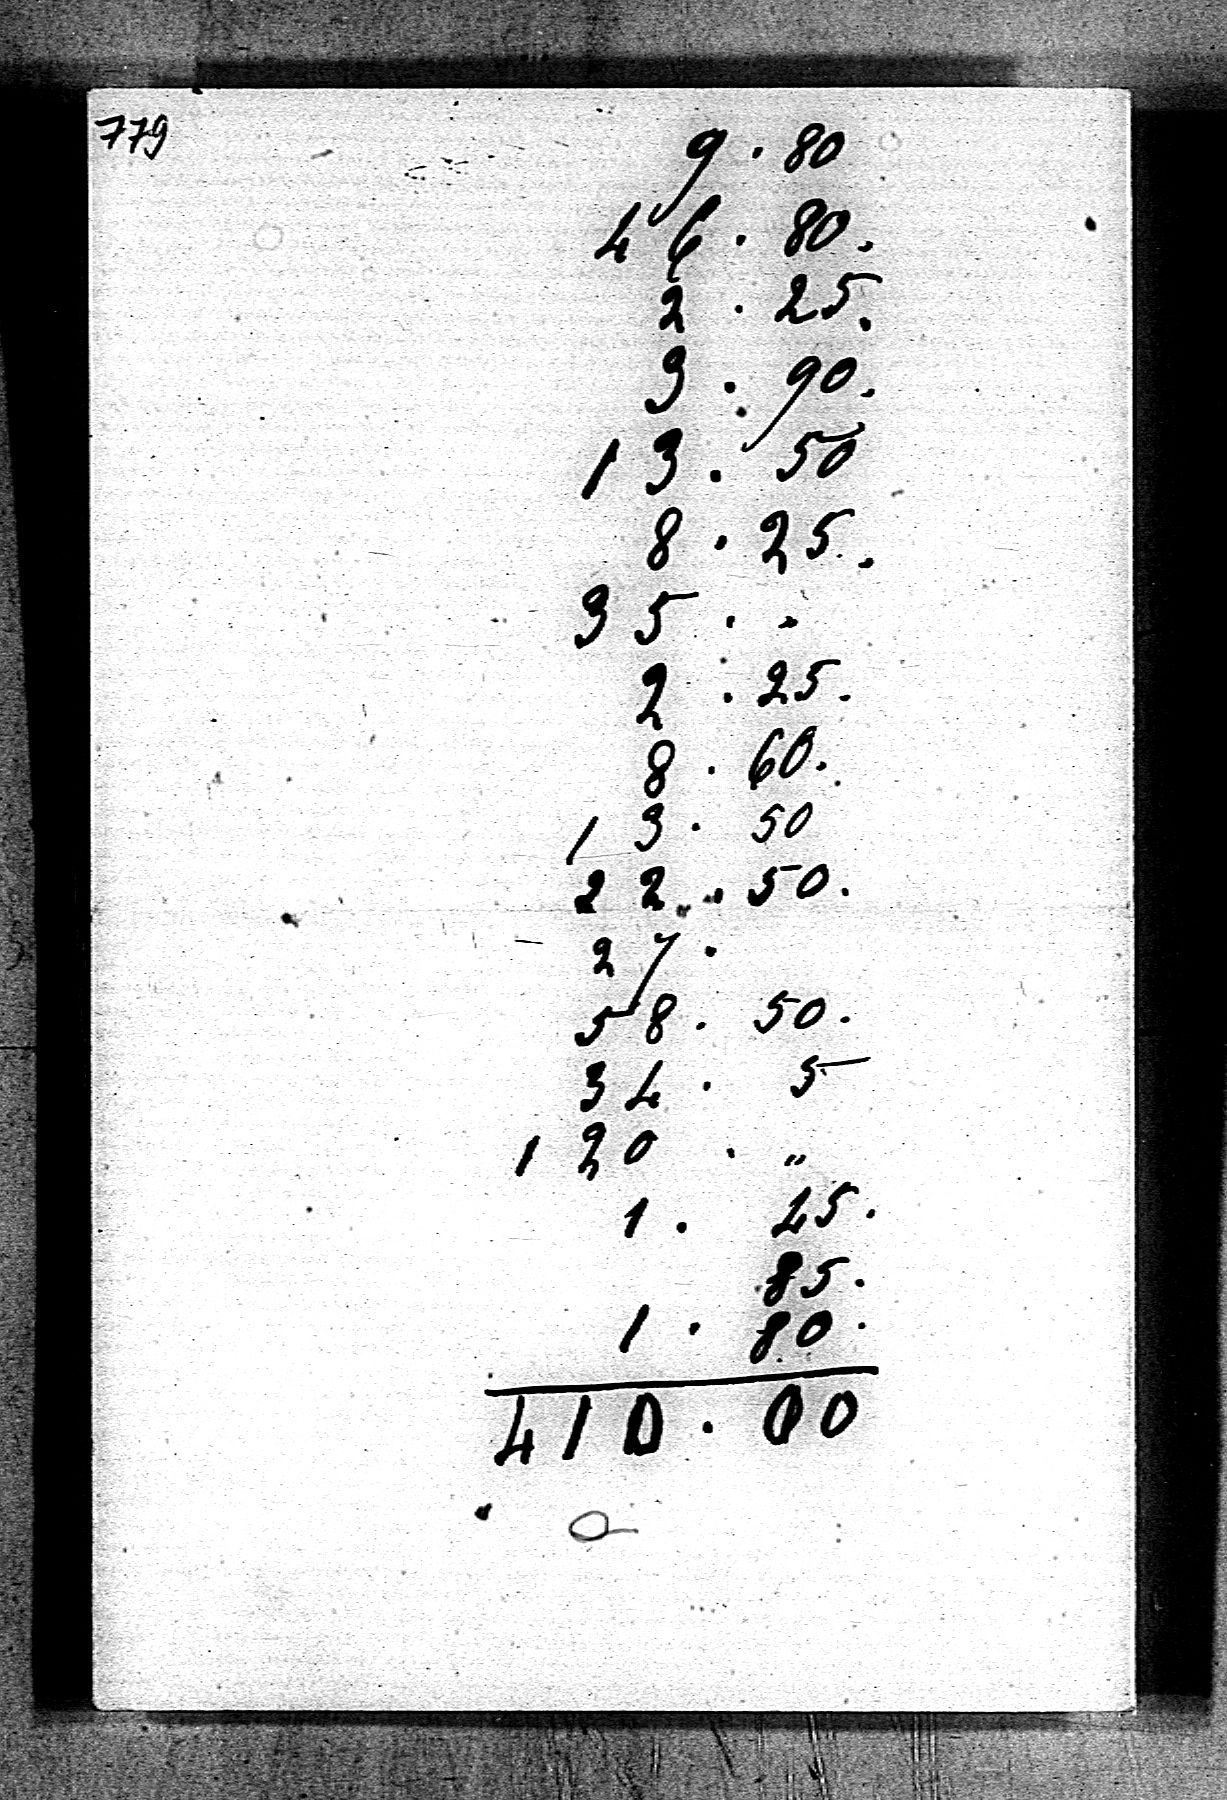 779
9 . 80
46 . 80.
2 . 25.
3 . 90.
13 . 50
8 . 25.
35 . -
2 . 25.
8 . 60.
13 . 50
22 . 50.
27 .
58 . 50.
34 . 5
120 . "
1 . 45.
85.
1 . 80.
410 . 00